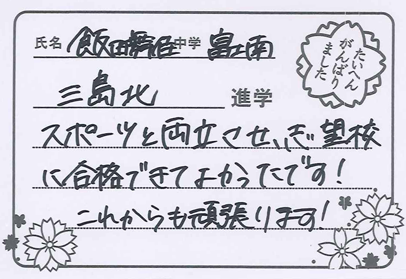 氏名 飯田 中学 富士南
三島北 進学
たいへん
がんばり
ました
スポーツと両立させ、志望校
に合格できてよかったです！
これからも頑張ります！